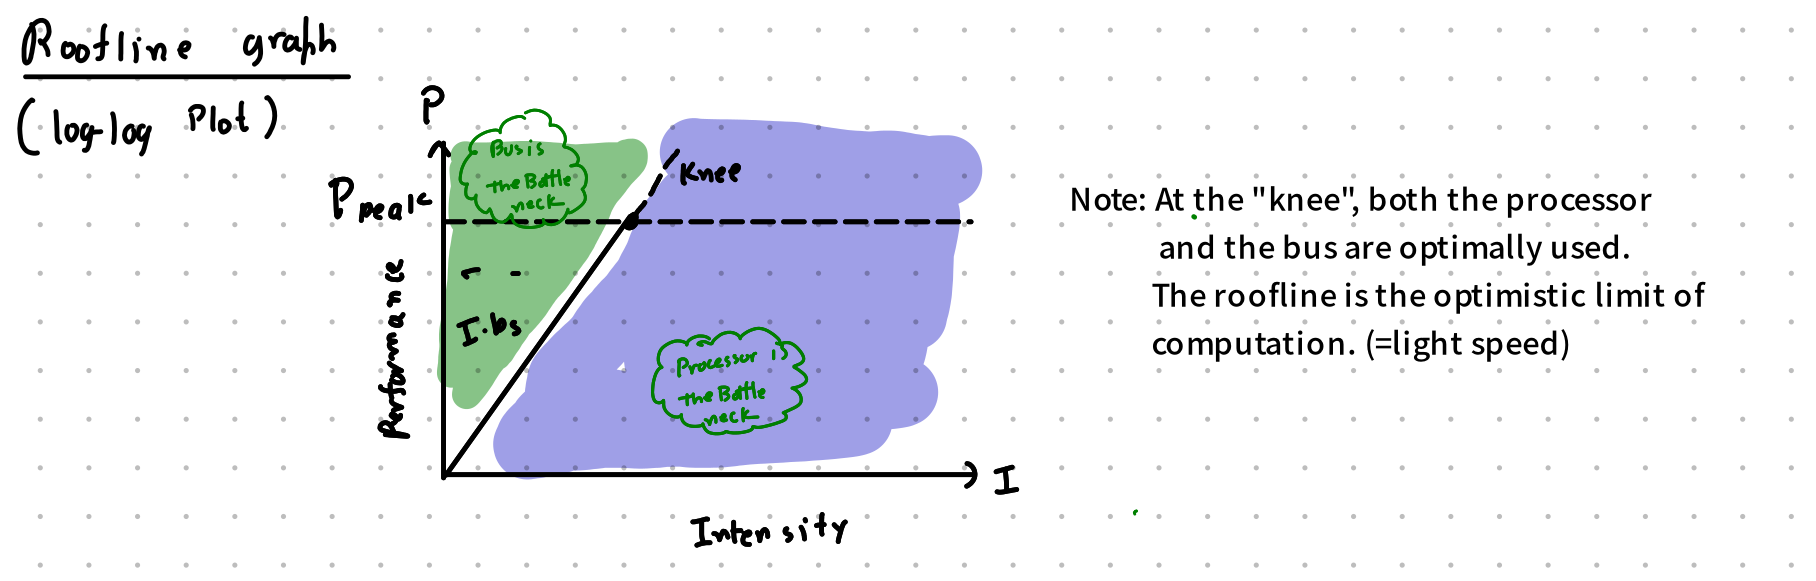 Roofline graph
(log-log Plot)
P
Bus is
the Bottle
neck
Knee
P peak
I·bs
Performance
Processor is
the Bottle
neck
I
Intensity
Note: At the "knee", both the processor
and the bus are optimally used.
The roofline is the optimistic limit of
computation. (=light speed)